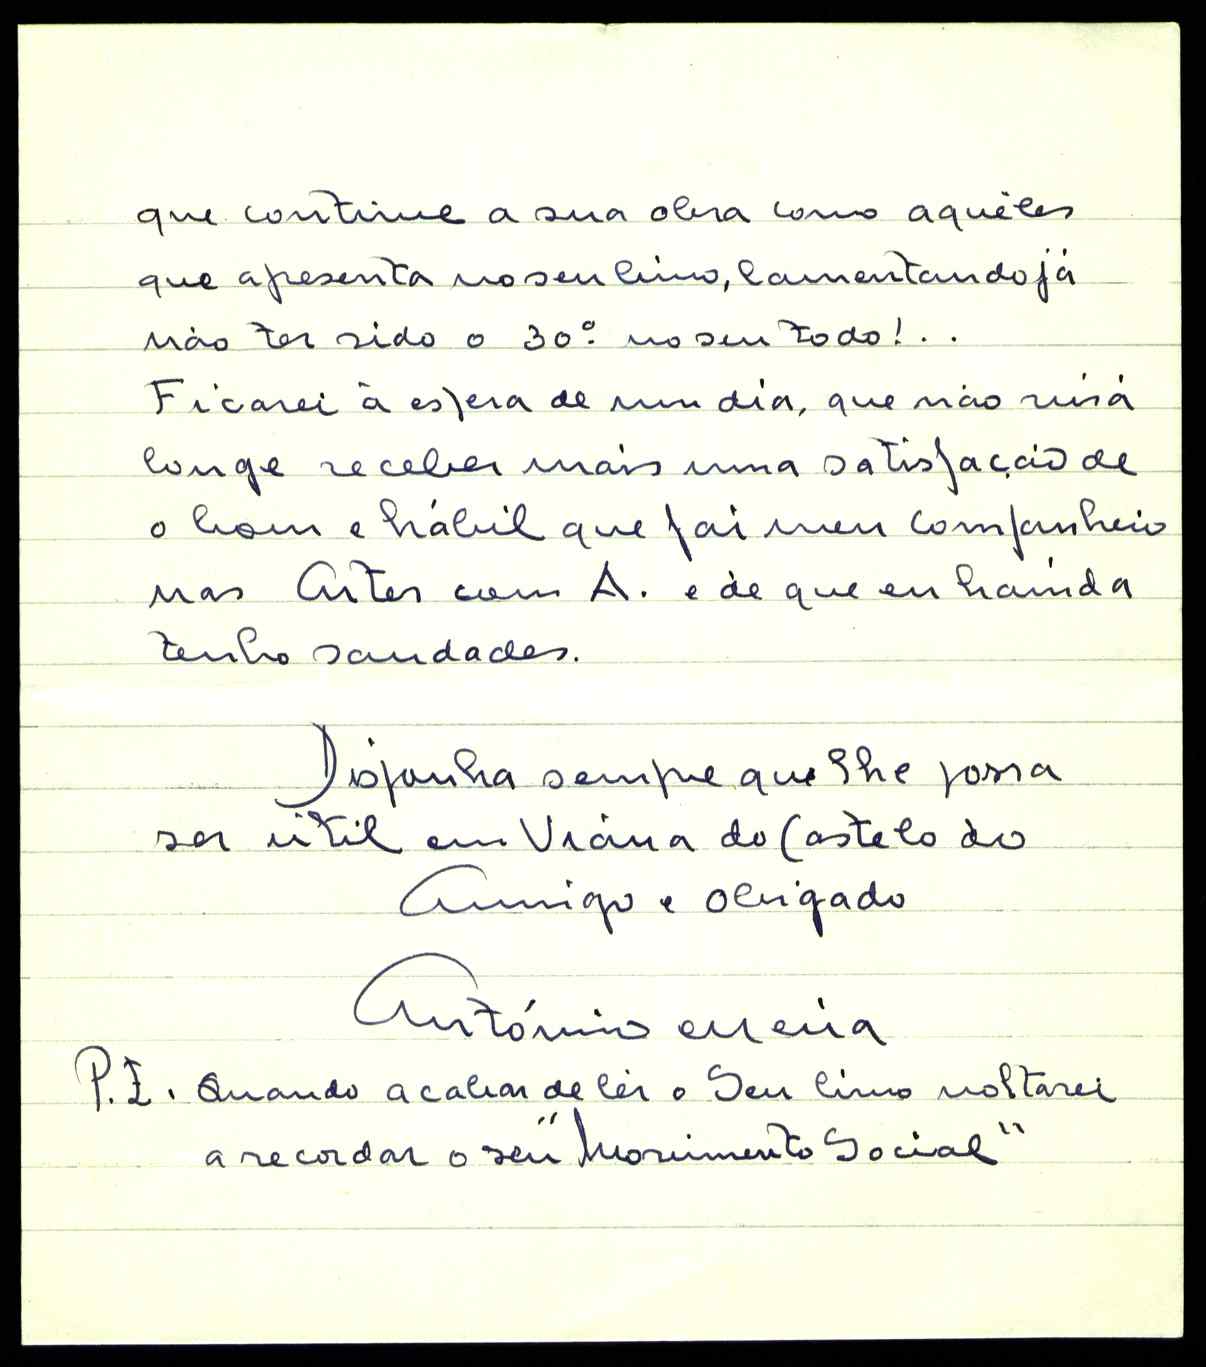 que continue a sua obra como aquêles
que apresenta no seu livro, lamentando já
não ter sido o 30º no seu todo!..
Ficarei à espera de um dia, que não virá
longe receber mais uma satisfação de
o bom e hábil que foi meu companheiro
nas Artes com A. e de que eu hainda
tenho saudades.
Disponha sempre que lhe possa
ser útil em Viana do Castelo do
Amigo e obrigado
António
P.I. Quando acabar de lêr o Seu livro voltarei
a recordar o seu "Movimento Social"